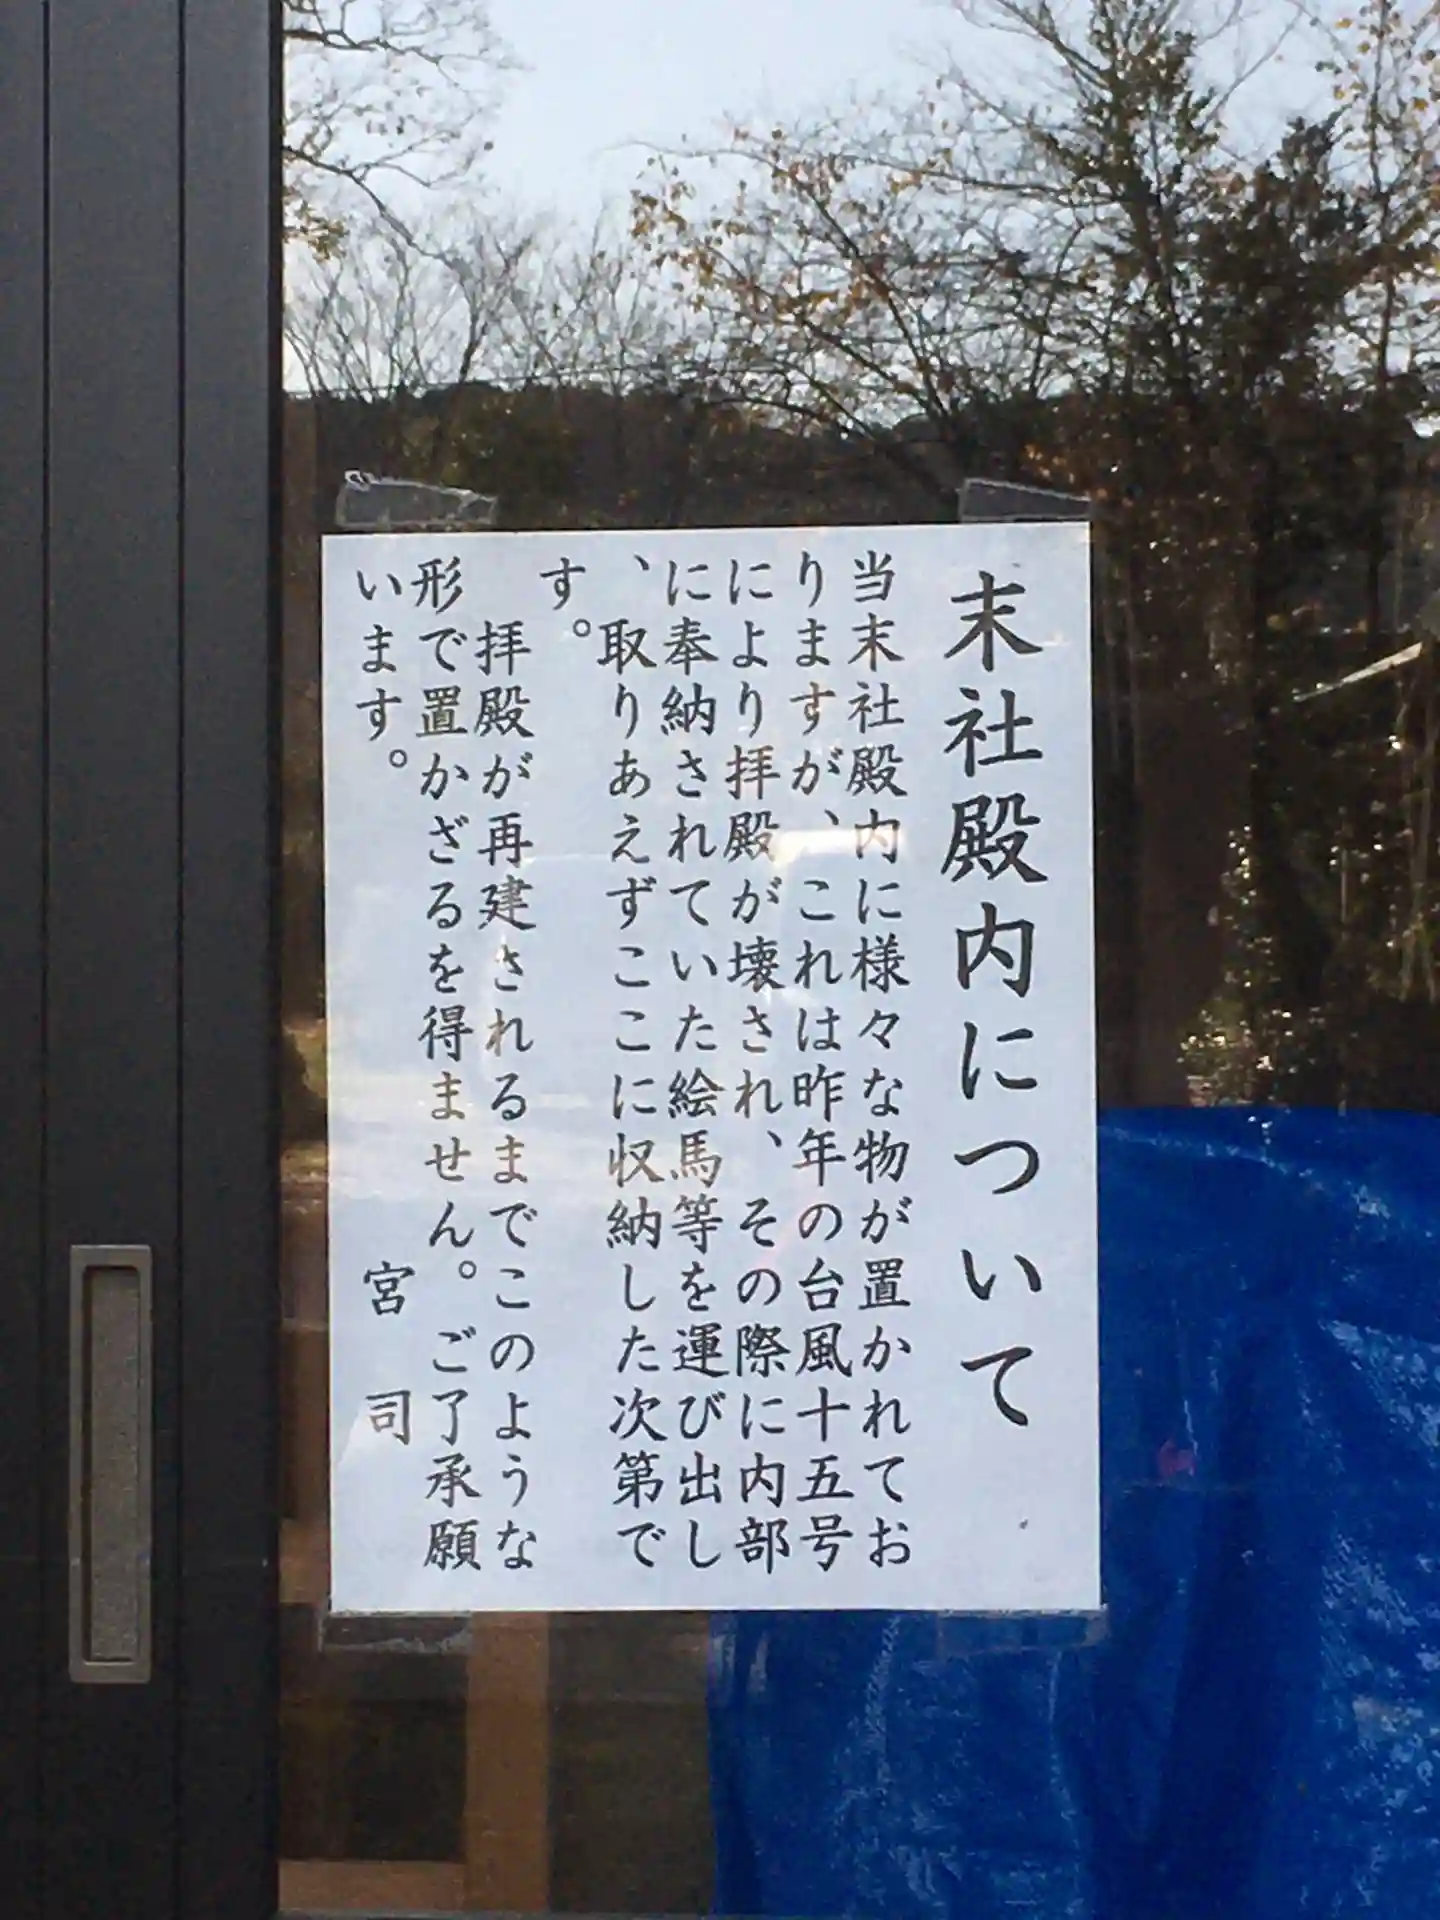 末社殿内について
当末社殿内に様々な物が置かれてお
りますが、これは昨年の台風十五号
により拝殿が壊され、その際に内部
に奉納されていた絵馬等を運び出し
、取りあえずここに収納した次第で
す。
拝殿が再建されるまでこのような
形で置かざるを得ません。ご了承願
います。
宮司